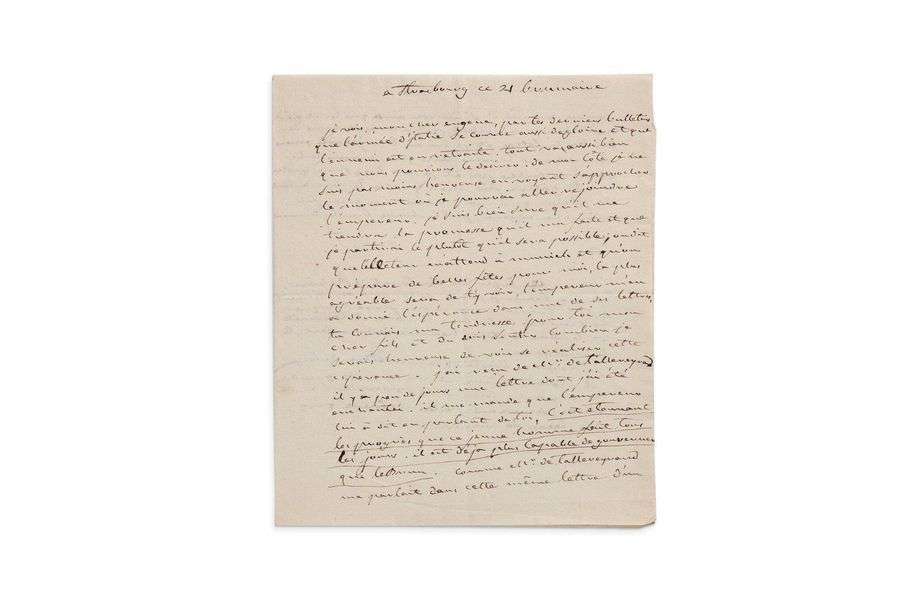 a Strasbourg ce 21 brumaire
je vois, mon cher eugene, par tes derniers bulletins
que l'armée d'italie se couvre aussi de gloire et que
l'ennemi est en retraite. tout va aussi bien
que nous pouvions le desirer. de mon côté je ne
suis pas moins heureuse en voyant s'approcher
le moment où je pourrai aller rejoindre
l'empereur. je suis bien sure qu'il me
tiendra la promesse qu'il m'a faite et que
je partirai le plutot qu'il sera possible, on dit
que l'électeur m'attend à munich et qu'on
prépare de belles fêtes pour moi, la plus
agréable sera de t'y voir, l'empereur m'en
a donné l'espérance dans une de ses lettres,
tu connais ma tendresse pour toi mon
cher fils et tu dois sentir combien je
serais heureuse de voir se réaliser cette
espérance. j'ai recu de Mr. de talleyrand
il y a peu de jours une lettre dont j'ai été
enchantée. il me mande que l'empereur
lui a dit en parlant de toi, c'est étonnant
les progrès que ce jeune homme fait tous
les jours, il est deja plus capable de gouverner
que le Brun. comme Mr. de talleyrand
me parlait dans cette même lettre d'un